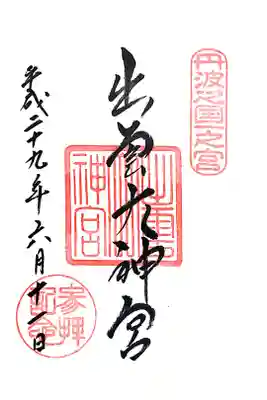 丹波国一之宮
出雲大神宮
出雲大神宮
平成二十九年六月十一日
参拝記念